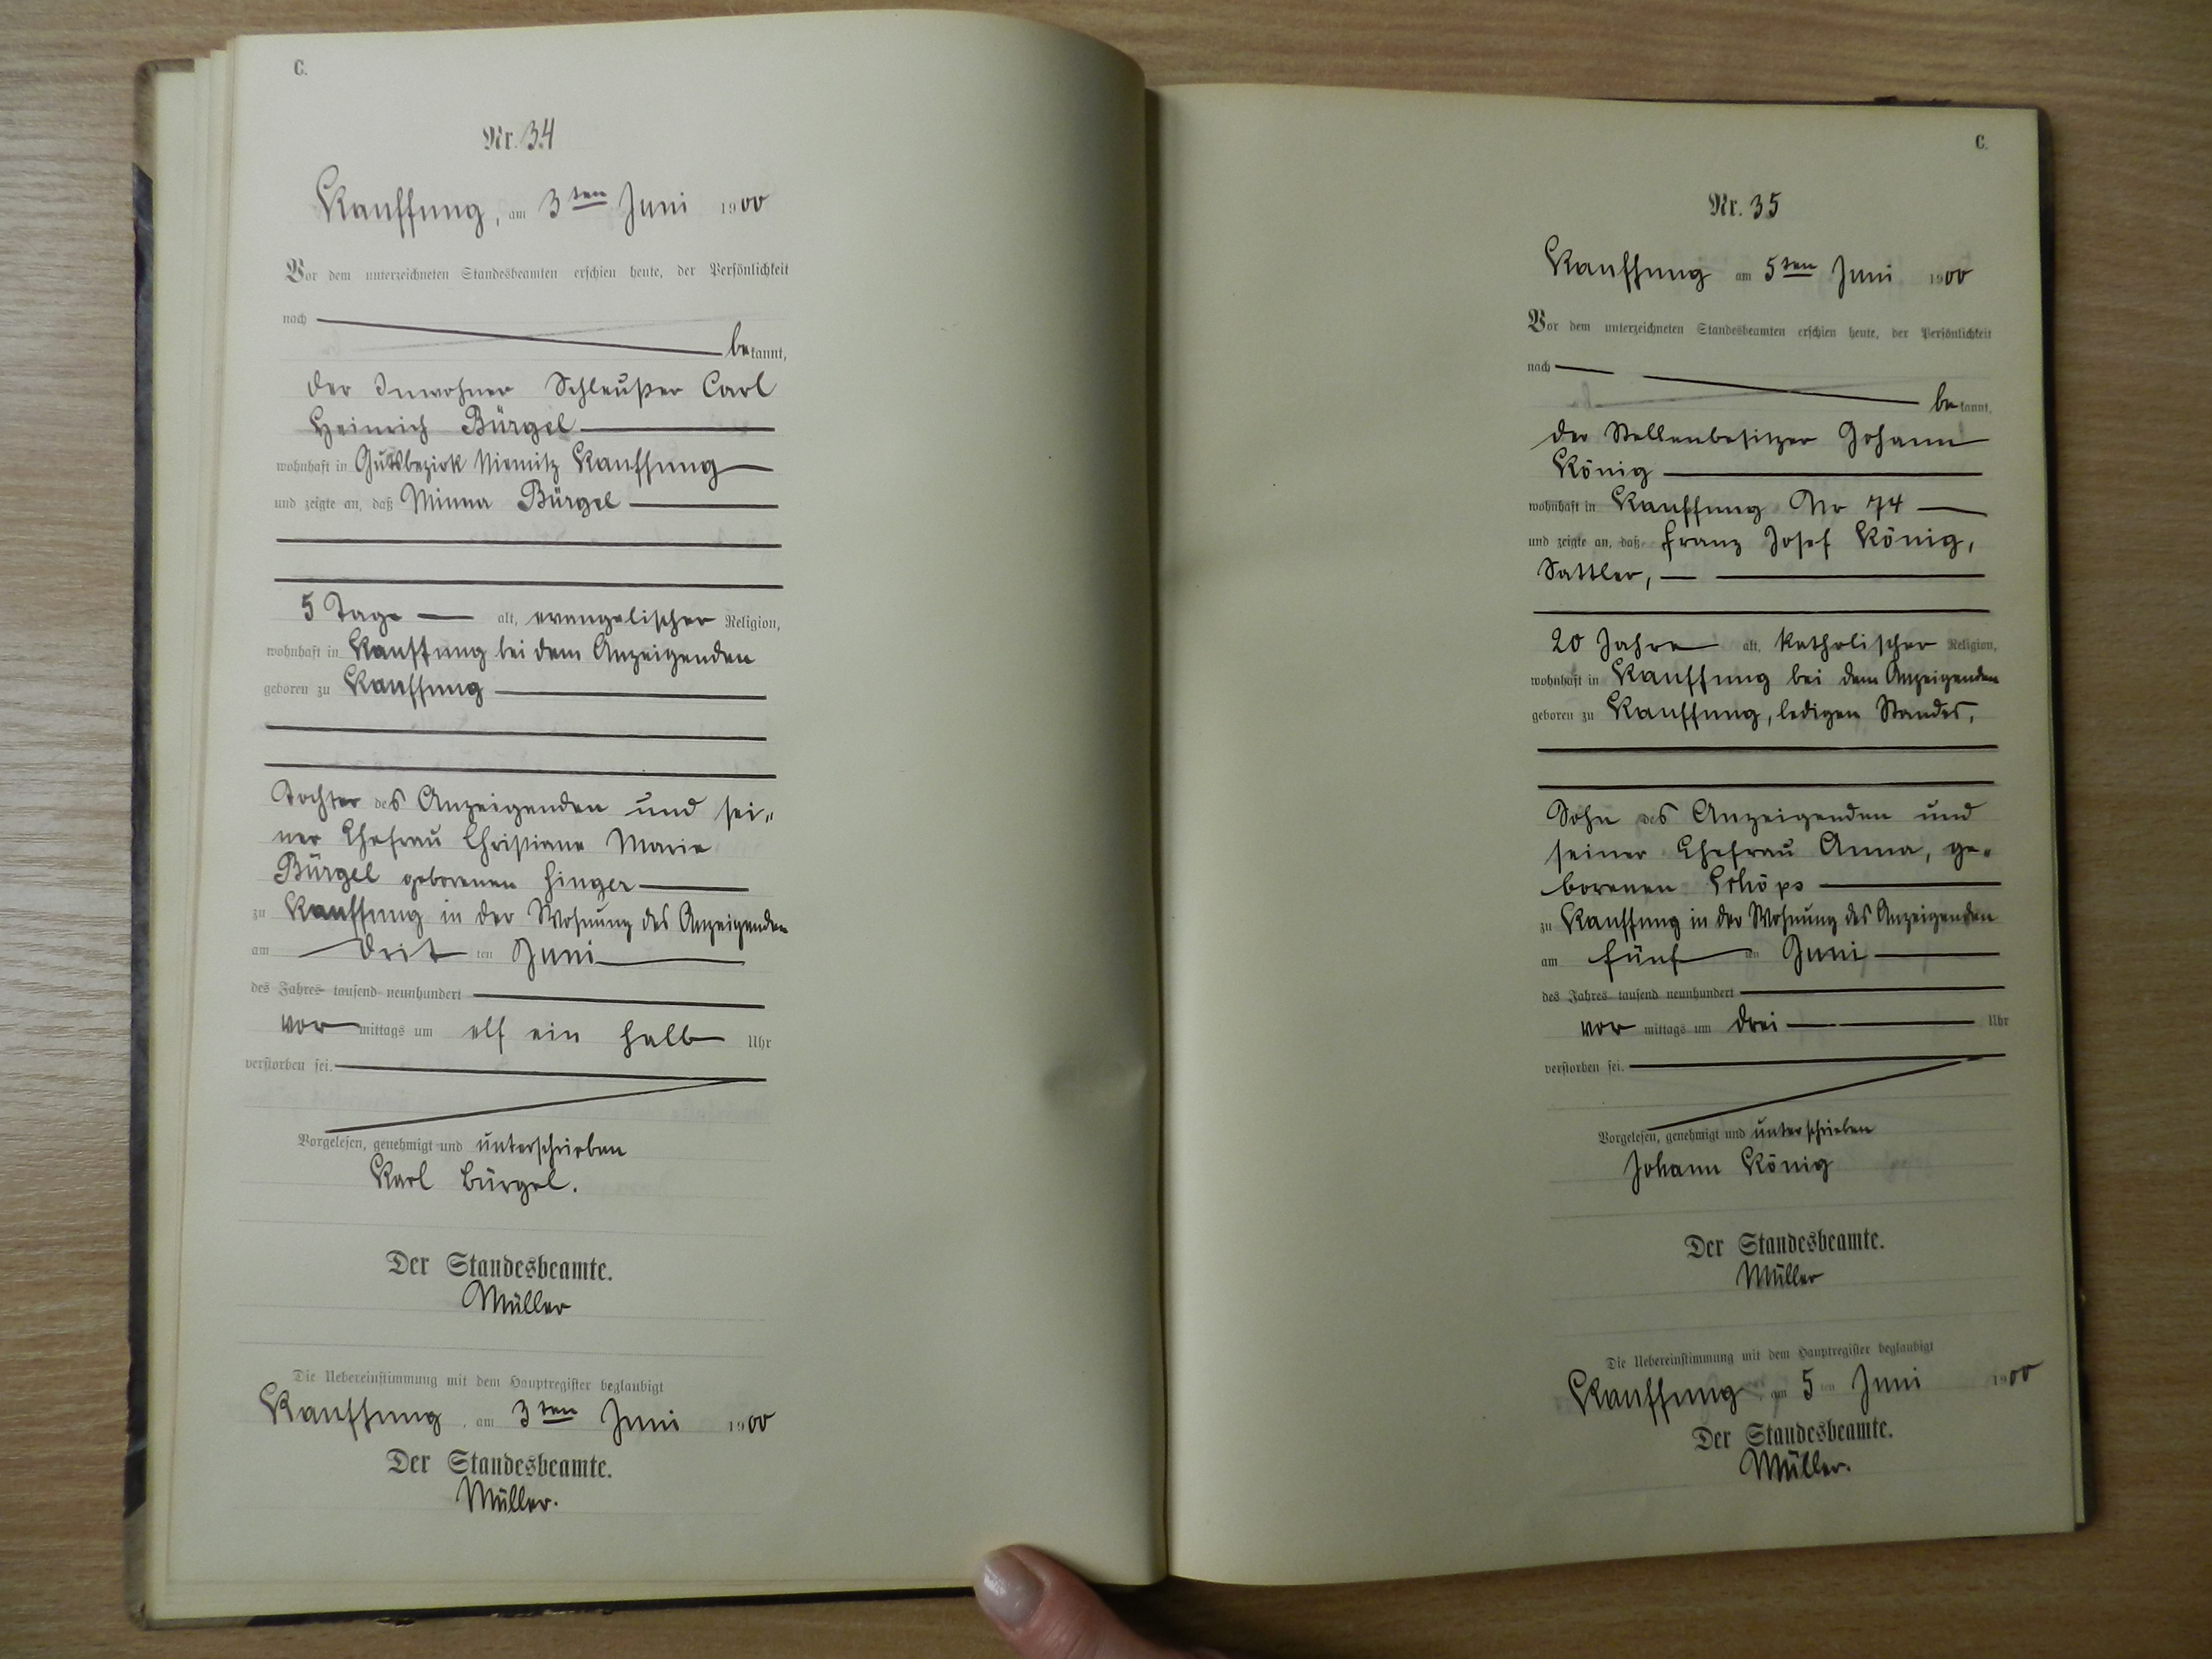 C.
Nr. 34
Kauffung, am 3ten Juni 1900
Vor dem unterzeichneten Standesbeamten erschien heute, der Persönlichkeit
nach
bekannt,
der Inwohner Schleußer Carl
Heinrich Bürgel
wohnhaft in Gutsbezirk Niemitz Kauffung
und zeigte an, daß Minna Bürgel
5 Tage alt, evangelischer Religion,
wohnhaft in Kauffung bei dem Anzeigenden
geboren zu Kauffung
Tochter des Anzeigenden und sei-
ner Ehefrau Christiane Marie
Bürgel geborenen Finger
zu Kauffung in der Wohnung des Anzeigenden
am dritten Juni
des Jahres tausend neunhundert
vormittags um elf ein halb Uhr
verstorben sei.
Vorgelesen, genehmigt und unterschrieben
Karl Bürgel.
Der Standesbeamte.
Müller
Die Uebereinstimmung mit dem Hauptregister beglaubigt
Kauffung, am 3ten Juni 1900
Der Standesbeamte.
Müller.
C.
Nr. 35
Kauffung am 5ten Juni 1900
Vor dem unterzeichneten Standesbeamten erschien heute, der Persönlichkeit
nach
bekannt,
der Stellenbesitzer Johann
König
wohnhaft in Kauffung No 74
und zeigte an, daß Franz Josef König,
Sattler,
20 Jahre alt, katholischer Religion,
wohnhaft in Kauffung bei dem Anzeigenden
geboren zu Kauffung, ledigen Standes,
Sohn des Anzeigenden und
seiner Ehefrau Anna, ge-
borenen Schöps
zu Kauffung in der Wohnung des Anzeigenden
am fünften Juni
des Jahres tausend neunhundert
vormittags um drei Uhr
verstorben sei.
Vorgelesen, genehmigt und unterschrieben
Johann König
Der Standesbeamte.
Müller
Die Uebereinstimmung mit dem Hauptregister beglaubigt
Kauffung, am 5ten Juni 1900
Der Standesbeamte.
Müller.